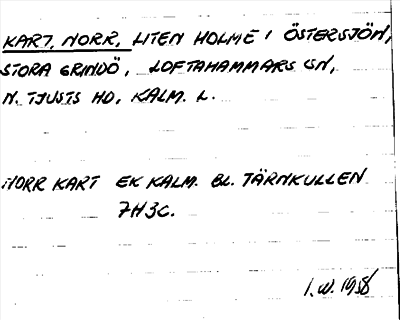 KART, NORR, LITEN HOLME I ÖSTERSJÖN,
STORA GRINDÖ, LOFTAHAMMARS SN,
N. TJUSTS HD, KALM. L.
NORR KART EK KALM. BL. TÄRNKULLEN
7H3C.
I.W. 1958